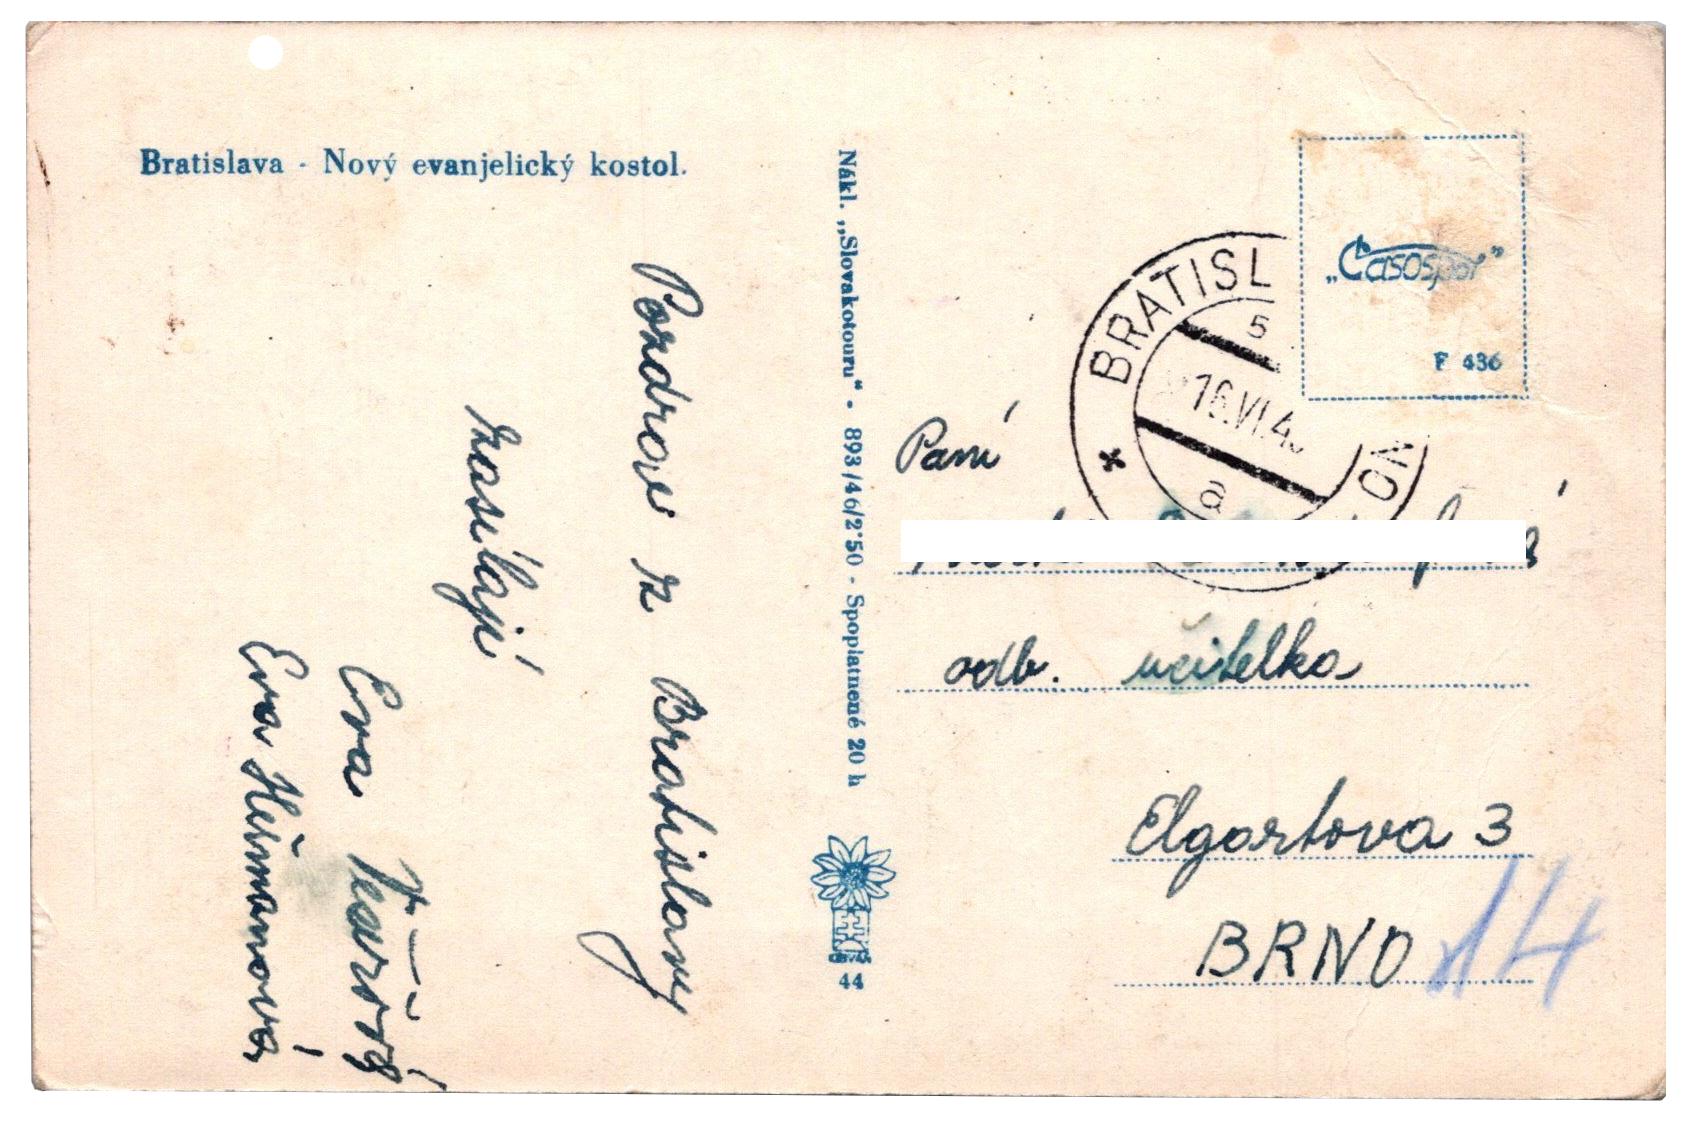 Bratislava - Nový evanjelický kostol.
Pozdrav z Bratislavy
zasílají
Eva
Eva Heřmanová
Nákl. „Slovakotouru“ - 893/46/2·50 - Spoplatnené 20 h
44
„Časospor“
F 436
BRATISL
5
16.VI.4
a
Paní
odb. učitelka
Elgartova 3
BRNO 14